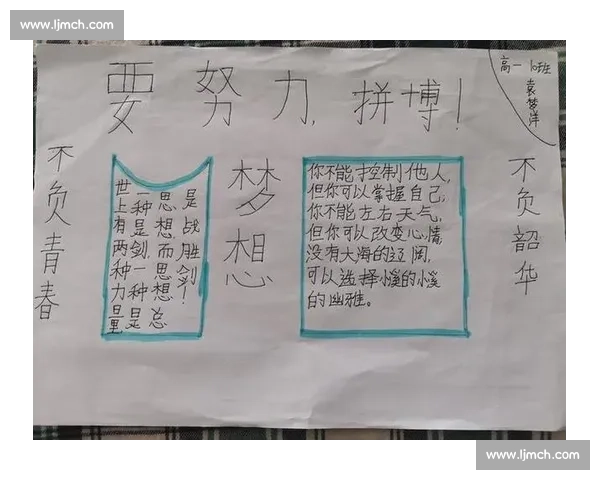 www.ljmch.com
要努力,拼博!
高一10班
袁梦洋
不负青春
世上有两种力量
一种是剑,一种是
思想,而思想总
是战胜剑!
梦想
你不能控制他人,
但你可以掌握自己;
你不能左右天气,
但你可以改变心情,
没有大海的辽阔,
可以选择小溪的小溪
的幽雅。
不负韶华
www.ljmch.com